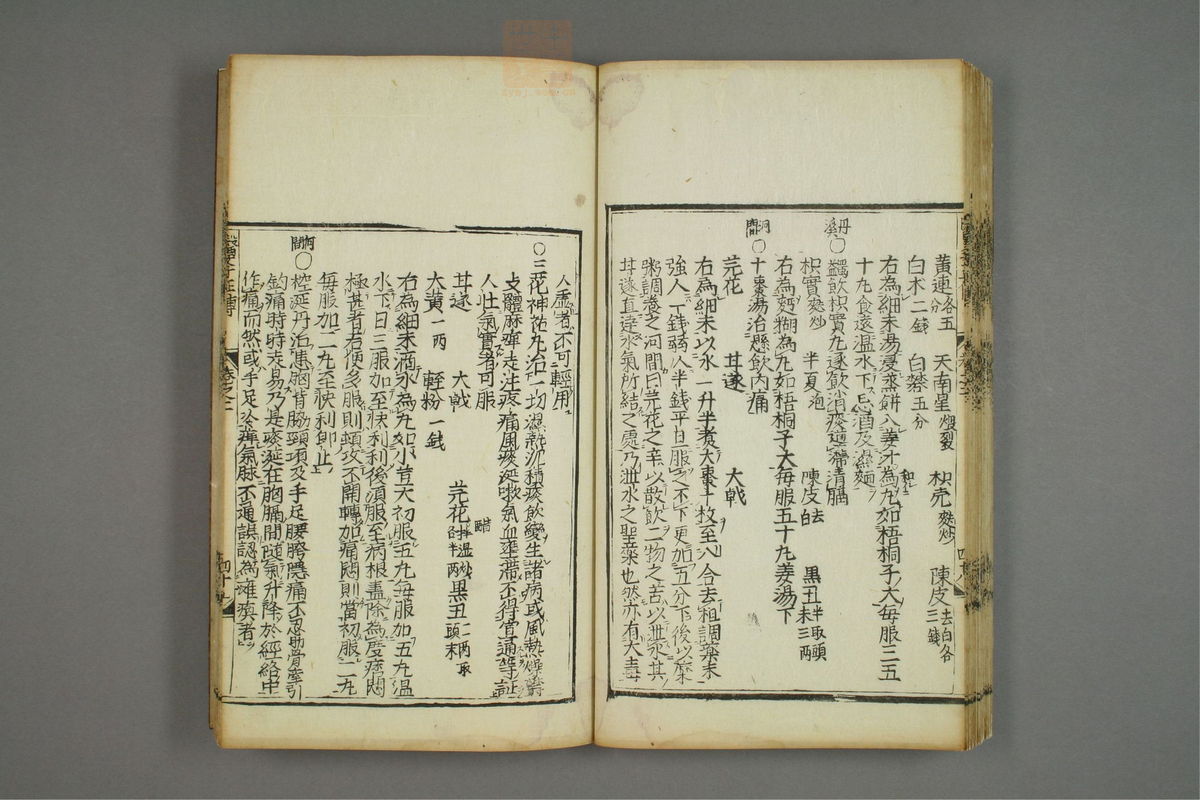 黃連各五分 天南星煨裂 枳壳麩炒 陳皮去白各三錢
白木二錢 白礬五分
右為細末湯浸蒸餅入姜汁和匀為丸如梧桐子大每服三五
十丸食遠溫水下忌酒及濕麵
丹溪○蠲飲枳實丸逐飲消痰導滯清膈
枳實麩炒 半夏泡 陳皮去白 黑丑半取頭末三兩
右為麪糊為丸如梧桐子大每服五十丸姜湯下
河間○十棗湯治懸飲內痛
芫花 甘遂 大戟
右為細末以水一升半煮大棗十枚至八合去柤調藥末
強人一錢弱人半錢平旦服之不下更加五分下後以糜
粥調養之河間曰芫花之辛以散飲二物之苦以泄水其
甘遂直達水氣所結之處乃泄水之聖藥也然亦有大毒
人虛者不可輕用
○三花神祐丸治一切濕熱沉積痰飲變生諸病或風熱燥欝
支體麻痺走注疼痛風痰涎嗽氣血壅滯不得宣通等証
人壯氣實者可服
甘遂 大戟 芫花醋拌濕炒各半兩 黑丑二兩取頭末
大黃一兩 輕粉一錢
右為細末滴水為丸如小荳大初服五丸每服加五丸溫
水下日三服加至快利利後須服至病根盡除為度痞悶
極甚者者便多服則頓攻不開轉加痛悶則當初服二丸
每服加二丸至快利即止
河間○控涎丹治患胸背脇頸項及手足腰胯隱痛不忍助骨牽引
釣痛時時走易乃是痰涎在胸膈間隨氣升降於經絡中
作痛而然或手足冷痺氣脉不通誤認為癱瘓者